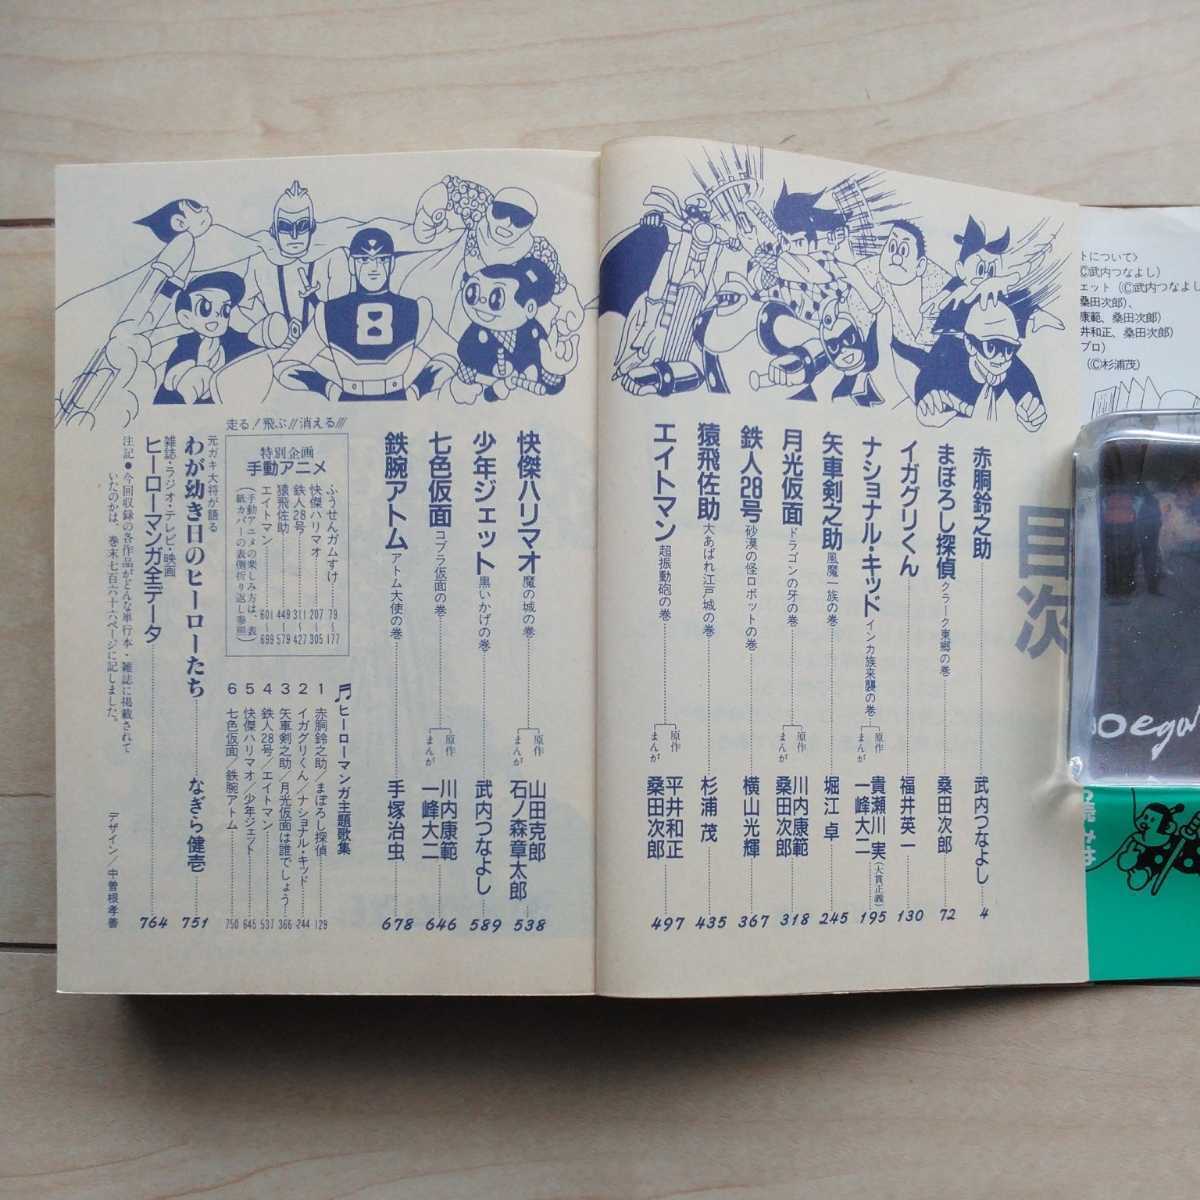 目次
赤胴鈴之助 武内つなよし 4
まぼろし探偵 クラーク東郷の巻 桑田次郎 72
イガグリくん 福井英一 130
ナショナル・キッド インカ族来襲の巻 原作 貴瀬川実(大貫正義) まんが 一峰大二 195
矢車剣之助 風魔一族の巻 堀江卓 245
月光仮面 ドラゴンの牙の巻 原作 川内康範 まんが 桑田次郎 318
鉄人28号 砂漠の怪ロボットの巻 横山光輝 367
猿飛佐助 大あばれ江戸城の巻 杉浦茂 435
エイトマン 超振動砲の巻 原作 平井和正 まんが 桑田次郎 497
快傑ハリマオ 魔の城の巻 原作 山田克郎 まんが 石ノ森章太郎 538
少年ジェット 黒いかげの巻 武内つなよし 589
七色仮面 コブラ仮面の巻 原作 川内康範 まんが 一峰大二 646
鉄腕アトム アトム大使の巻 手塚治虫 678
走る!飛ぶ!!消える!!!
特別企画
手動アニメ
ふうせんガムすけ 79〜177
快傑ハリマオ 207〜305
鉄人28号 311〜427
猿飛佐助 449〜579
エイトマン 601〜699
(手動アニメの楽しみ方は、表
紙カバーの表側折り返し参照)
♬ヒーローマンガ主題歌集
1 赤胴鈴之助/まぼろし探偵 129
2 イガグリくん/ナショナル・キッド 244
3 矢車剣之助/月光仮面は誰でしょう 366
4 鉄人28号/エイトマン 537
5 快傑ハリマオ/少年ジェット 645
6 七色仮面/鉄腕アトム 750
元ガキ大将が語る
わが幼き日のヒーローたち なぎら健壱 751
雑誌・ラジオ・テレビ・映画
ヒーローマンガ全データ 764
注記●今回収録の各作品がどんな単行本・雑誌に掲載されて
いたのかは、巻末七百六十六ページに記しました。
デザイン/中曽根孝善
8
トについて〉
©武内つなよし)
ェット (©武内つなよし
桑田次郎)、
康範、桑田次郎)
井和正、桑田次郎)
プロ)
(©杉浦茂)